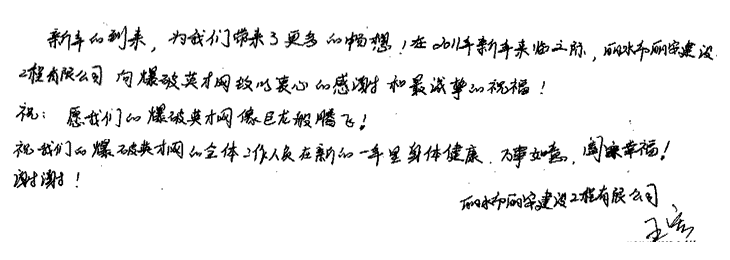 新年的到来，为我们带来了更多的畅想！在2011年新年来临之际，丽水市丽宏建设
工程有限公司向爆破英才网致以衷心的感谢和最诚挚的祝福！
祝：愿我们的爆破英才网像巨龙般腾飞！
祝我们的爆破英才网的全体工作人员在新的一年里身体健康、万事如意，阖家幸福！
谢谢！
丽水市丽宏建设工程有限公司
王